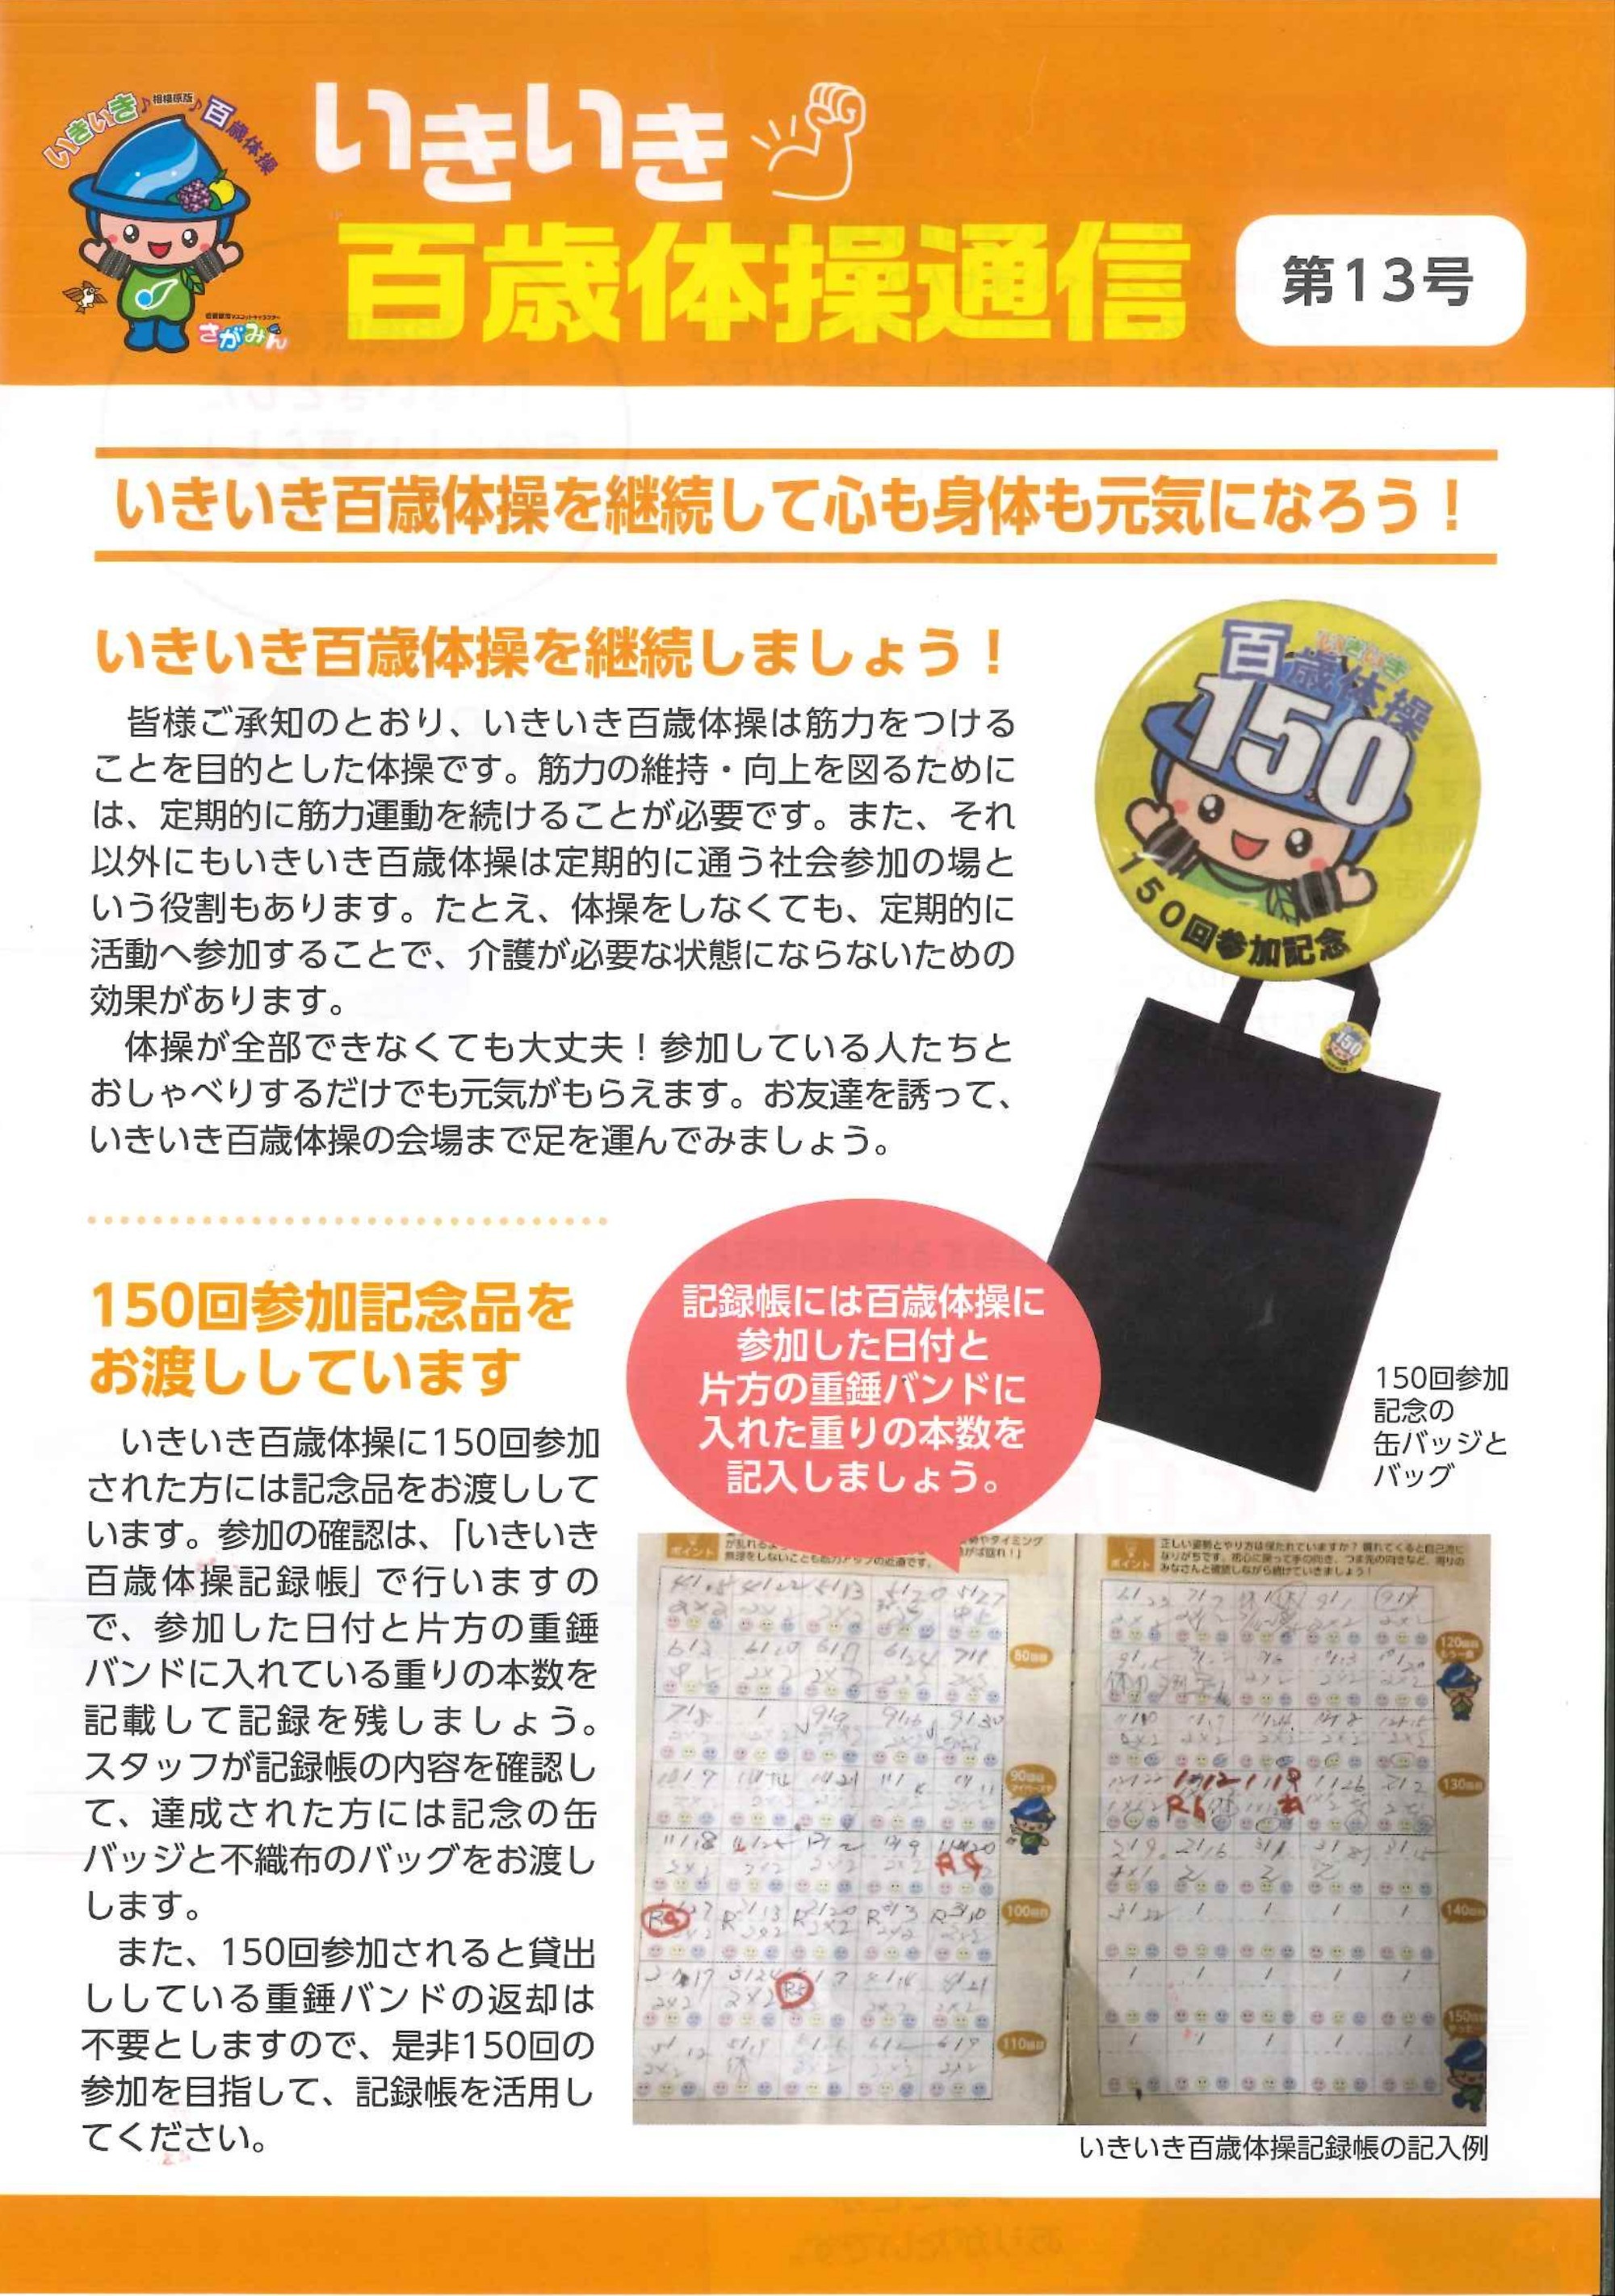 いきいき♪相模原版♪百歳体操
さがみん
いきいき
百歳体操通信
第13号
いきいき百歳体操を継続して心も身体も元気になろう！
いきいき百歳体操を継続しましょう！
皆様ご承知のとおり、いきいき百歳体操は筋力をつける
ことを目的とした体操です。筋力の維持・向上を図るために
は、定期的に筋力運動を続けることが必要です。また、それ
以外にもいきいき百歳体操は定期的に通う社会参加の場と
いう役割もあります。たとえ、体操をしなくても、定期的に
活動へ参加することで、介護が必要な状態にならないための
効果があります。
体操が全部できなくても大丈夫！参加している人たちと
おしゃべりするだけでも元気がもらえます。お友達を誘って、
いきいき百歳体操の会場まで足を運んでみましょう。
いきいき
百歳体操
150
150回参加記念
150
150回参加
記念の
缶バッジと
バッグ
150回参加記念品を
お渡ししています
いきいき百歳体操に150回参加
された方には記念品をお渡しして
います。参加の確認は、「いきいき
百歳体操記録帳」で行いますの
で、参加した日付と片方の重錘
バンドに入れている重りの本数を
記載して記録を残しましょう。
スタッフが記録帳の内容を確認し
て、達成された方には記念の缶
バッジと不織布のバッグをお渡し
します。
また、150回参加されると貸出
ししている重錘バンドの返却は
不要としますので、是非150回の
参加を目指して、記録帳を活用し
てください。
記録帳には百歳体操に
参加した日付と
片方の重錘バンドに
入れた重りの本数を
記入しましょう。
ポイント
無理をしないことも筋力アップの近道です。
ポイント
正しい姿勢とやり方は保たれていますか？慣れてくると自己流に
なりがちです。初心に戻って手の向き、つま先の向きなど、周りの
みなさんと確認しながら続けていきましょう！
80回目
90回目
100回目
110回目
120回目
130回目
140回目
150回目
いきいき百歳体操記録帳の記入例